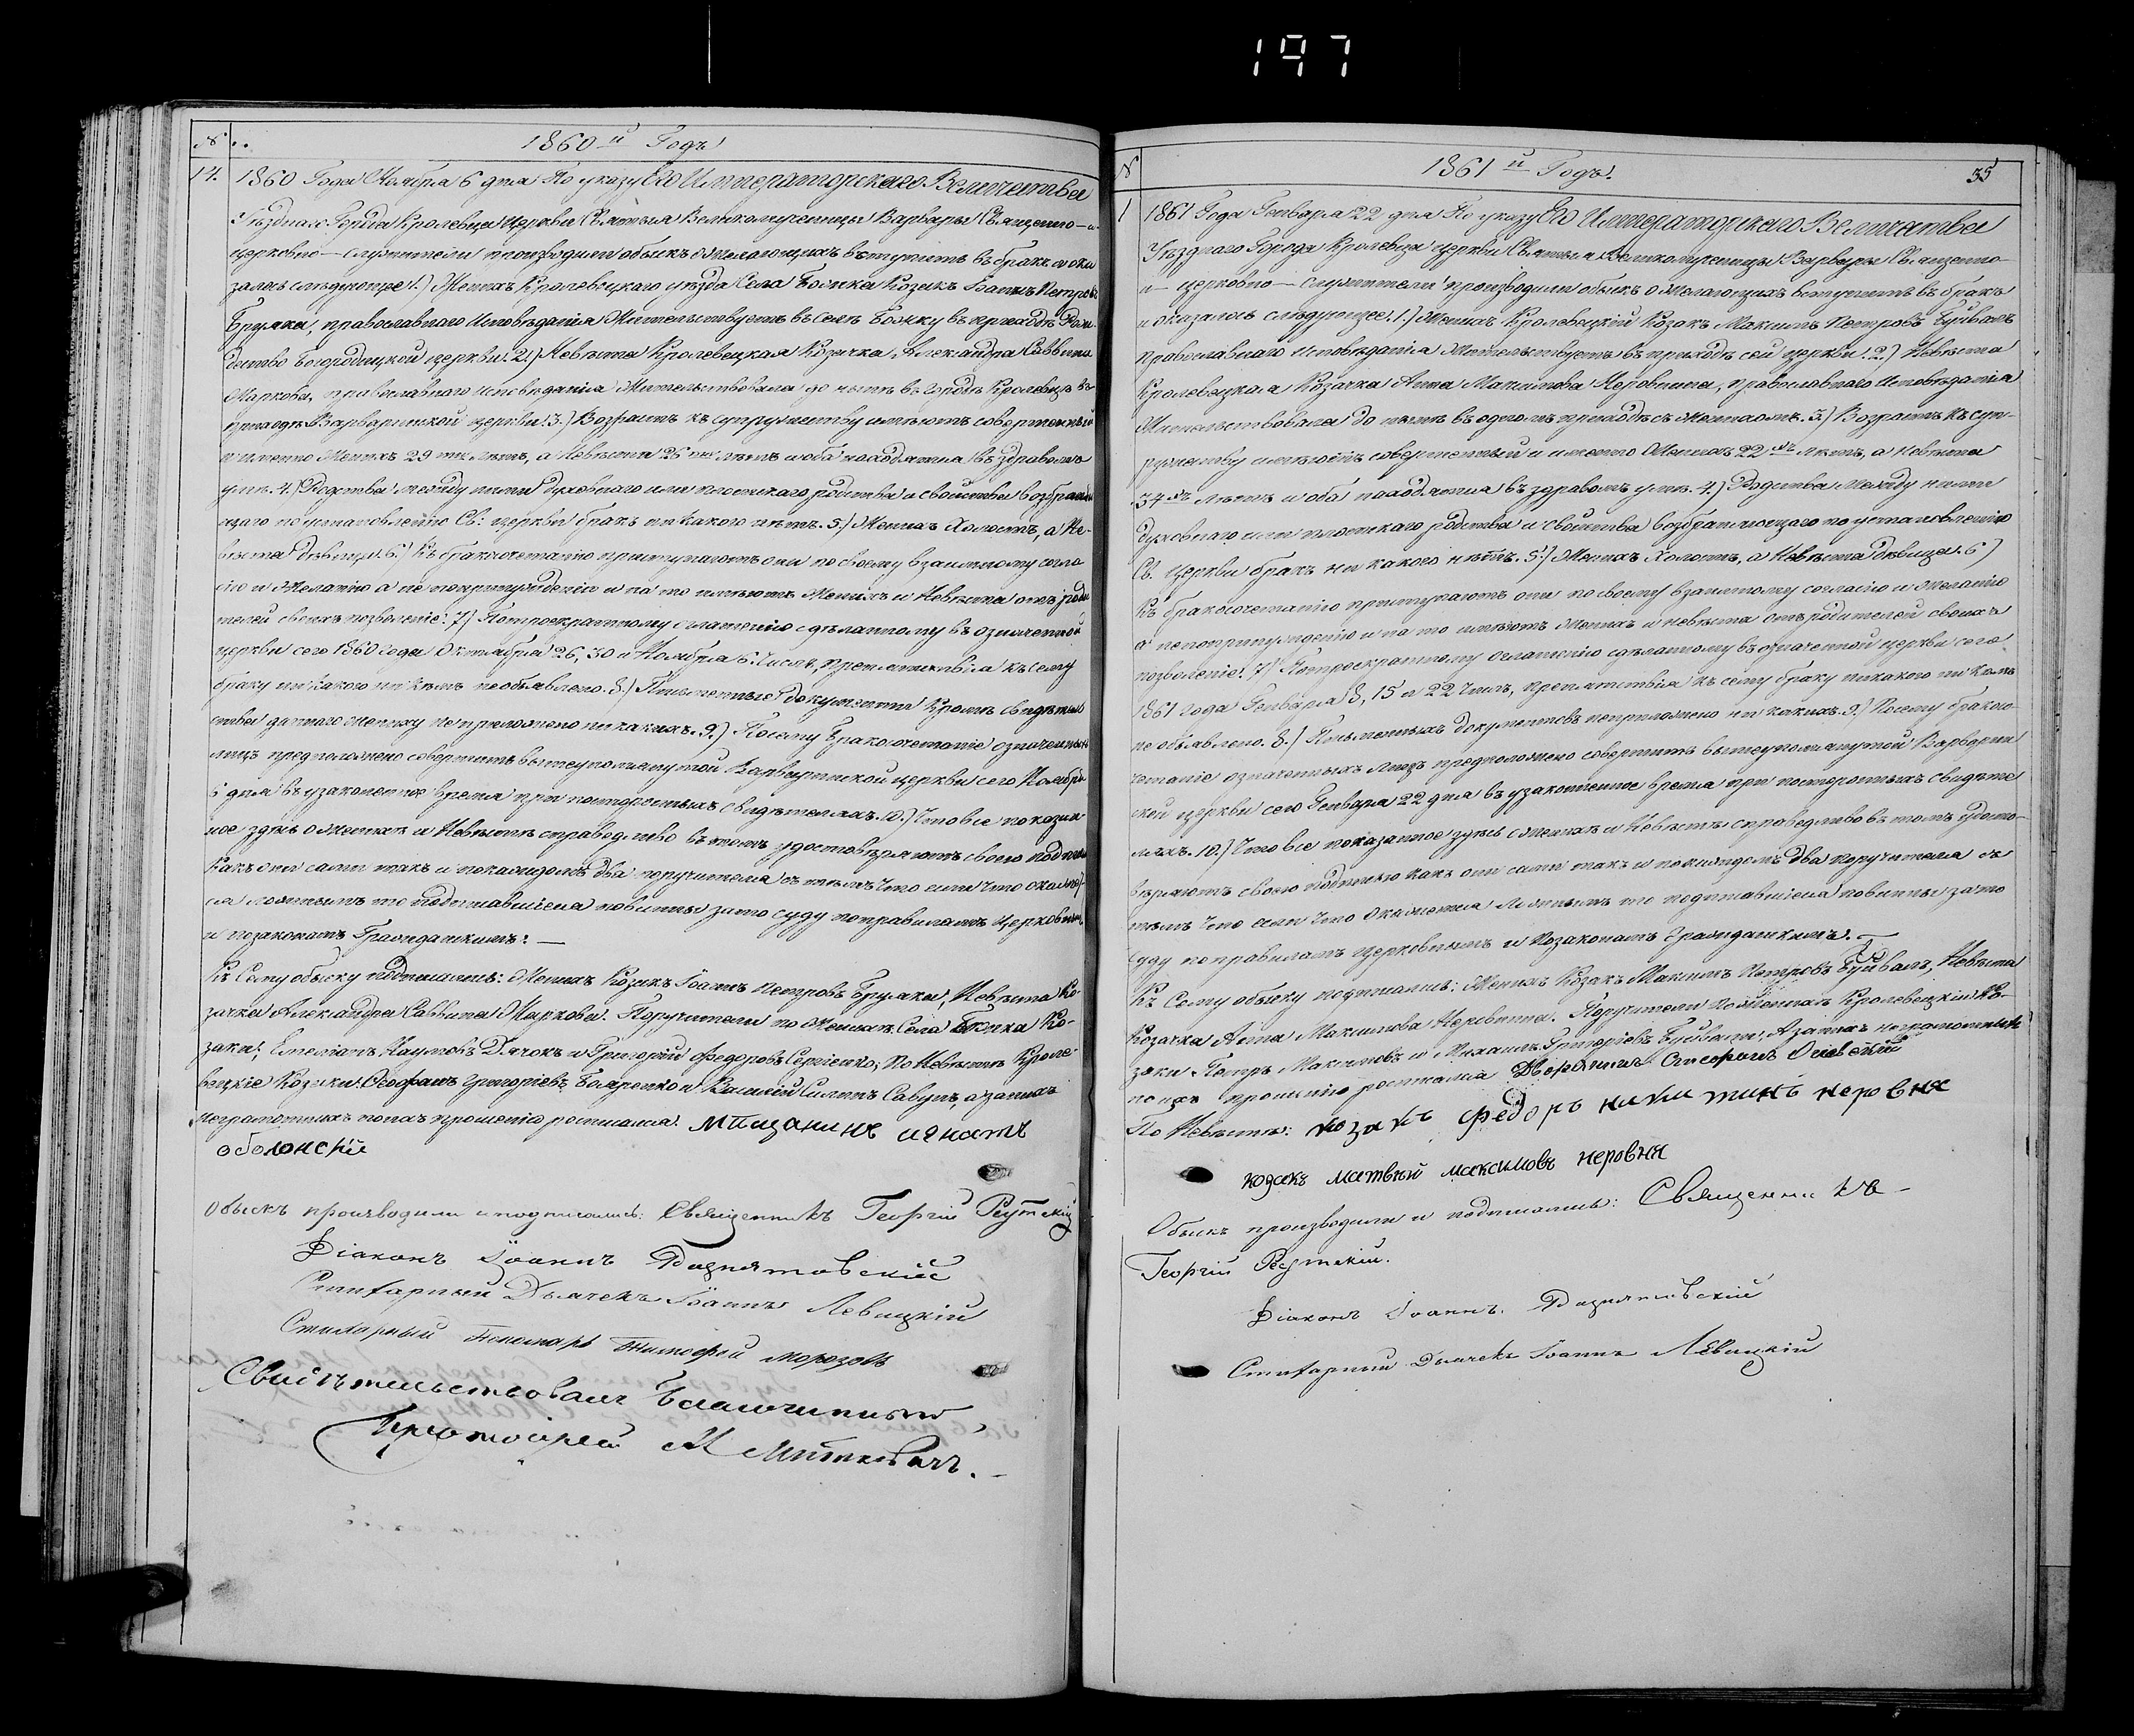 197
№
1860й Годъ
14. 1860 Года Ноября 6 дня По указу Его Императорскаго Величества
Уѣзднаго Города Кролевца Церкви Святыя Великомученицы Варвары Священно – и
церковно – служители производили обыскъ о желающихъ вступить въ бракъ и ока
залось слѣдующее 1.) Женихъ Кролевецкаго уѣзда Села Козакъ Іоаннъ Петровъ
православнаго Исповѣданія Жительствуетъ въ селѣ въ приходѣ Рож-
дество Богородицкой церкви. 2.) Невѣста Кролевецкая Козачка Александра Саввина
Маркова, православнаго исповѣданія Жительствовала до нынѣ въ Городѣ Кролевцѣ въ
приходѣ Варваринской церкви. 3.) Возрастъ къ супружеству имѣютъ совершенный
и именно Женихъ 29 ти лѣтъ, а Невѣста 26 ти лѣтъ и оба находятся въ здравомъ
умѣ. 4.) Родства между ними духовнаго или плотскаго родства и свойства возбраня
ющаго по установленію Св: церкви бракъ ни какого нѣтъ. 5.) Женихъ Холостъ, а Не-
вѣста дѣвица. 6.) Къ бракосочетанію приступаютъ они по своему взаимному согла
сію и Желанію а не по принужденію и на то имѣютъ Женихъ и Невѣста отъ роди
телей своихъ позволеніе. 7.) По троекратному оглашенію сдѣланному въ означенной
церкви сего 1860 года Октября 26, 30 и Ноября 6 Числъ, препятствія къ сему
браку ни какого ни кѣмъ не объявлено. 8.) Письменныхъ документовъ кромѣ свидѣтель
ства даннаго жениху не приложено ни какихъ. 9.) Посему бракосочетаніе означенныхъ
лицъ предположено совершить въ вышеупомянутой Варваринской церкви сего Ноября
6 дня въ узаконенное время при постороннихъ свидѣтеляхъ. 10.) Что все показан
ное здѣсь о Женихѣ и Невѣстѣ справедливо въ томъ удостовѣряютъ своею подписью
какъ они сами такъ и по каждомъ два поручителя съ тѣмъ что если что окажет-
ся ложнымъ то подписавшіеся повинны за то суду по правиламъ Церковнымъ
и по законамъ Гражданскимъ. —
Къ Сему обыску подписались: Женихъ Козакъ Іоаннъ Петровъ Невѣста Ко-
зачка Александра Саввина Маркова. Поручители по Женихѣ Села Ко-
заки: Емеліанъ Наумовъ Дячокъ и Григорій Федоровъ Сергіенко; По Невѣстѣ Кроле-
вецкіе Козаки: Феофанъ Григоріевъ и Василій Савунъ, а за нихъ
неграмотныхъ по ихъ прошенію росписался. мѣщанинъ игнатъ
оболонскій
Обыскъ производили и подписались: Священникъ Георгій Реутскій
Діаконъ Іоаннъ
Стихарный Дьячекъ Іоаннъ Левицкій
Стихарный Пономарь Тимофей Морозовъ
Свидѣтельствовалъ Благочинный
Протоіерей М Миткевичъ.
№
1861й Годъ.
35
1 1861 Года Генваря 22 дня По указу Его Императорскаго Величества
Уѣзднаго Города Кролевца церкви Святыя Великомученицы Варвары Священно
и – церковно – служители производили обыскъ о желающихъ вступить въ бракъ
и оказалось слѣдующее. 1.) Женихъ Кролевецкій Козакъ Максимъ Петровъ Буйвалъ
православнаго исповѣданія Жительствуетъ въ приходѣ сей церкви. 2.) Невѣста
Кролевецкая Козачка Анна Максимова Неровнина, православнаго Исповѣданія
Жительствовала до нынѣ въ одномъ приходѣ съ Женихомъ. 3.) Возрастъ къ суп-
ружеству имѣютъ совершенный и именно Женихъ 22 хъ лѣтъ, а невѣста
34 хъ лѣтъ и оба находятся въ здравомъ умѣ. 4.) Родства между ними
духовнаго или плотскаго родства и свойства возбраняющаго по установленію
Св. церкви бракъ ни какого нѣтъ. 5.) Женихъ Холостъ, а Невѣста дѣвица. 6.)
Къ бракосочетанію приступаютъ они по своему взаимному согласію и желанію
а не по принужденію и на то имѣютъ женихъ и невѣста отъ родителей своихъ
позволеніе. 7.) По троекратному оглашенію сдѣланному въ означенной церкви сего
1861 года Генваря 8, 15 и 22 Числъ, препятствія къ сему браку никакого ни кѣмъ
не объявлено. 8.) Письменныхъ документовъ не приложено ни какихъ. 9.) Посему бракосо
четаніе означенныхъ лицъ предположено совершить въ вышеупомянутой Варварин
ской церкви сего Генваря 22 дня въ узаконенное время при постороннихъ свидѣте
ляхъ. 10.) Что все показанное здѣсь о женихѣ и Невѣстѣ справедливо въ томъ удосто-
вѣряютъ своею подписью какъ они сами такъ и по каждомъ два поручителя съ
тѣмъ что если что окажется ложнымъ то подписавшіеся повинны за то
суду по правиламъ церковнымъ и по законамъ гражданскимъ. —
Къ Сему обыску подписались: Женихъ Козакъ Максимъ Петровъ Буйвалъ, Невѣста
Козачка Анна Максимова Неровнина. Поручители по Женихѣ Кролевецкіе Ко-
заки: Петръ Максимовъ и Михаилъ Григоріевъ Буйвалы, А за нихъ неграмотныхъ
по ихъ прошенію росписался Дворянинъ Стефанъ
По Невѣстѣ: козакъ Федоръ никитинъ неровня
козакъ матвѣй максимовъ неровня
Обыскъ производили и подписались: Священникъ
Георгій Реутскій.
Діаконъ Іоаннъ
Стихарный Дьячекъ Іоаннъ Левицкій